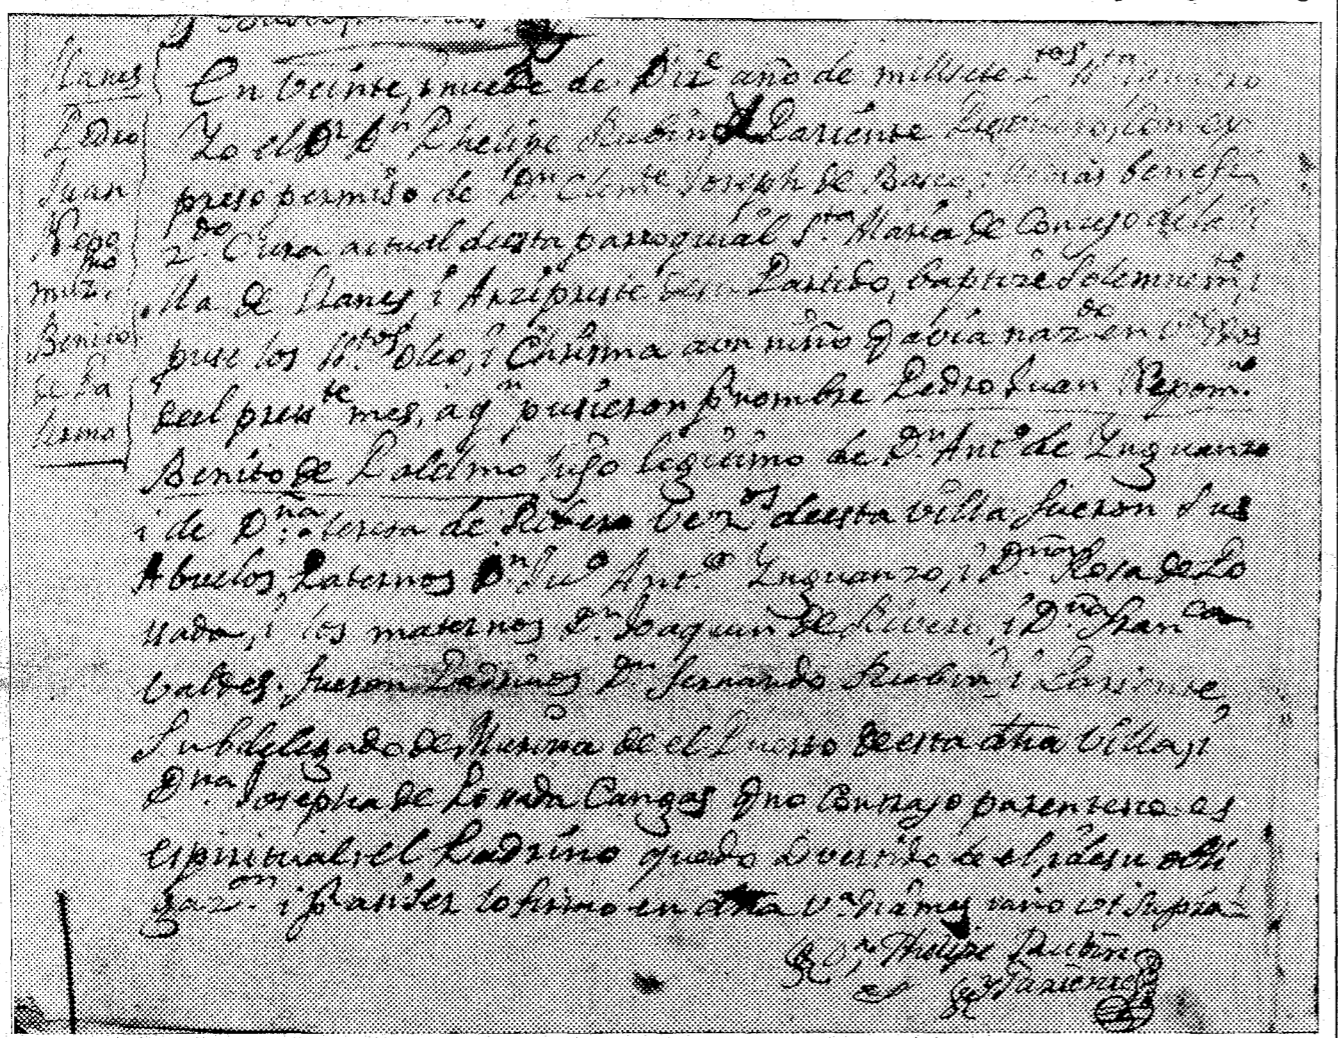 Llanes
Pedro
Juan
Nepo
mo
muz.
Benito
de Pa
lermo
En Veinte, i nuebe de Diz.e año de mill sete z.tos
Yo el Dr. Dn. Phelipe Rubin Pariente con ex
preso permiso de Dn. Clem.te Joseph de benefi
z.do Cura actual de esta parroquial S.ta Maria de Concejo de la
lla de Llanes, i Arzipreste Partido, baptize Solemnem.te, i
puse los S.tos Oleo, i Chrisma a un niño q abia naz.do en
deel pres.te mes, a q.n pusieron p.r nombre Pedro Juan Nepom.o
Benito de Palermo, hijo legitimo de D.n Ant.o de Ynguanzo
i de D.ña teresa de Ribero vez.os de esta Villa fueron Sus
Abuelos, Paternos D.n Ju.o Ant.o Ynguanzo, i D.ña Rosa de Po
sada, i los maternos D.n Joaquin de Ribero, i D.ña Fran.ca
Valdes, fueron Padrinos D.n fernando Rubin, i Pariente
Subdelegado de Marina de el Puerto de esta dha Villa, i
D.ña Josepha de Posada Cangas q no Contrajo parentesco es
espiritual, el Padrino quedo advertido de el, i de su obli
gaz.on i p.r ser lo firmo en dha V.a dia mes i año ut supra
Dn. Phelipe Rubin
Pariente